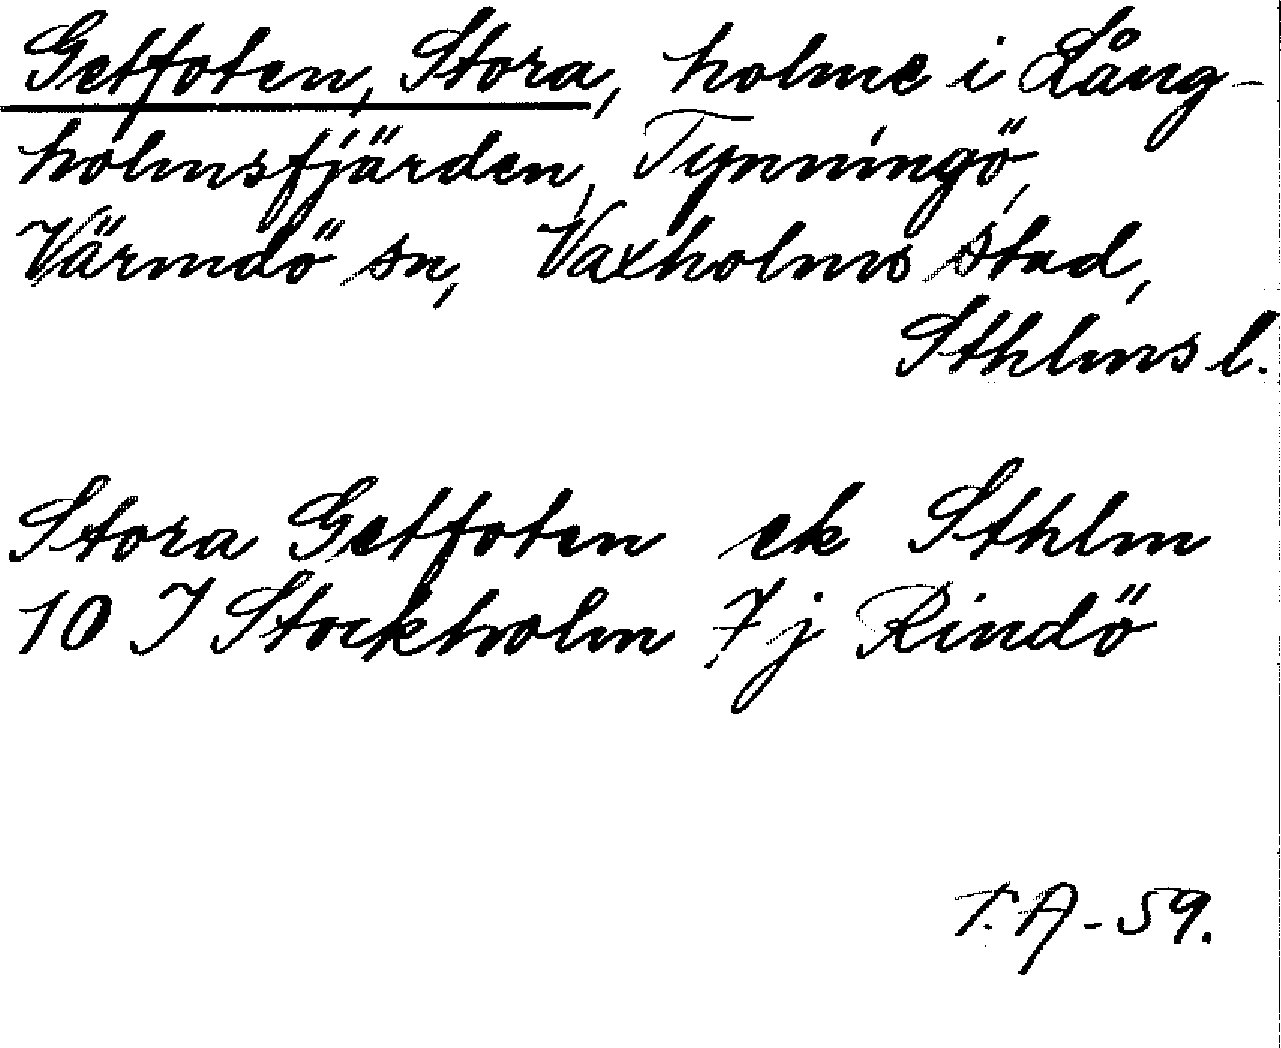 Getfoten, Stora, holme i Lång-
holmsfjärden, Tynningö,
Värmdö sn, Vaxholms stad,
Sthlms l.
Stora Getfoten ek Sthlm
10 I Stockholm 7j Rindö
T.A-59.